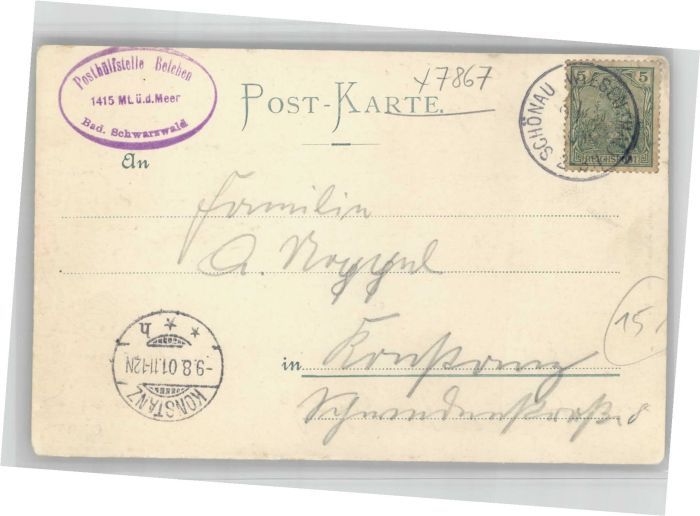 Posthülfstelle Belchen
1415 Mt. ü.d. Meer
Bad. Schwarzwald
x7867
POST-KARTE.
SCHÖNAU
5 5
REICHSPOST
An
Familie
A. Noppel
in Konstanz
15.
KONSTANZ
-9.8.01.11-12N
* * h